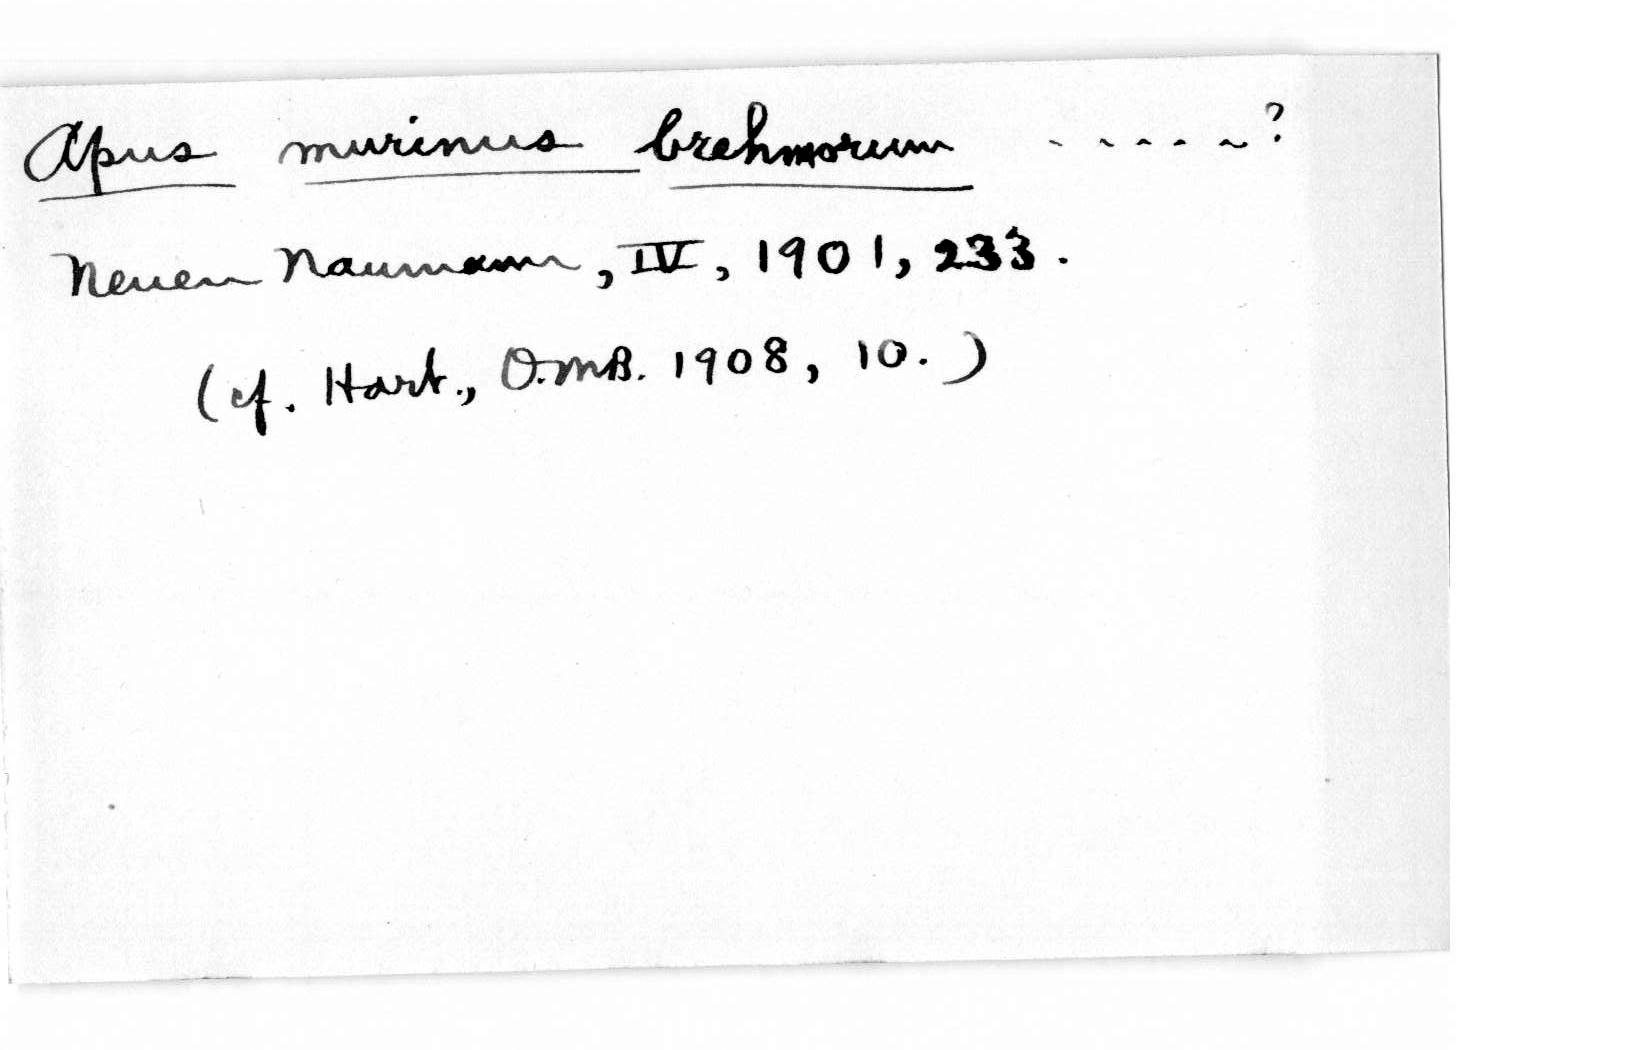 Apus murinus brehmorum - - - - - ?
Neuen Naumann, IV, 1901, 233.
(cf. Hart., O.M.B. 1908, 10.)